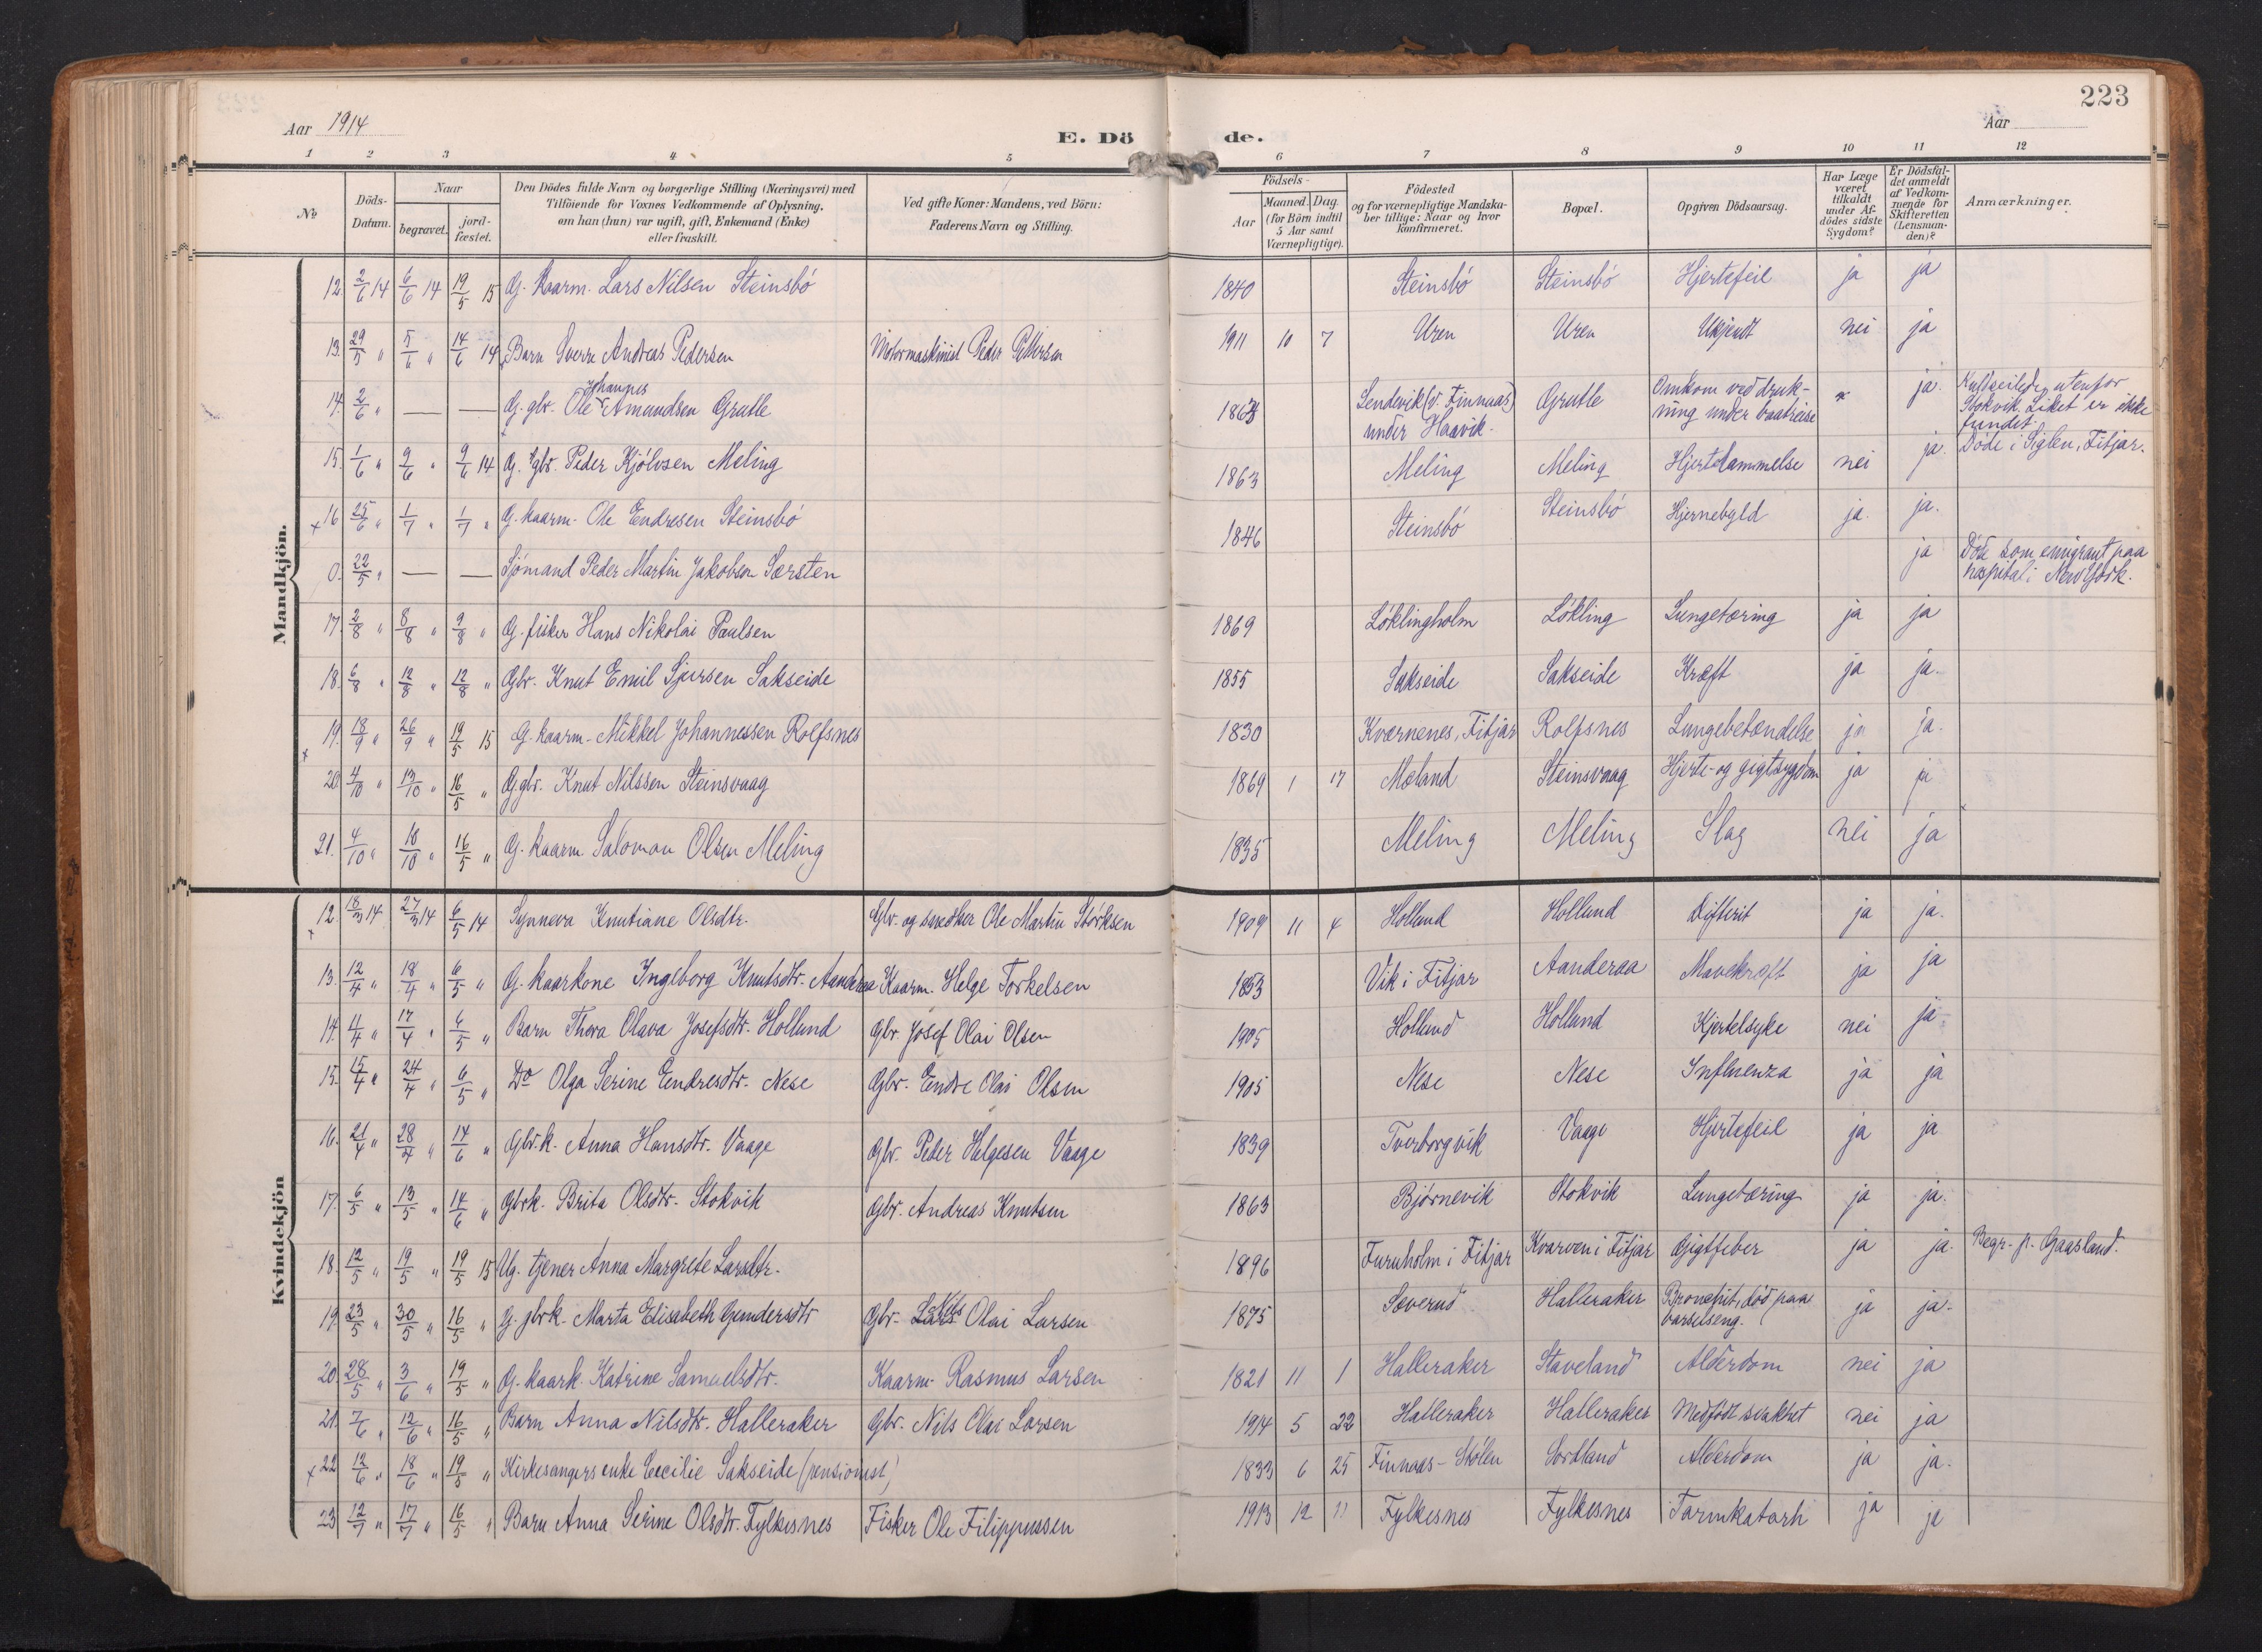 223
Aar 1914
E. Dö de.
Aar
1 2 3 4 5 6 7 8 9 10 11 12
No
Döds-Datum.
Naar
begravet.
jord-fæstet.
Den Dödes fulde Navn og borgerlige Stilling (Næringsvei) med
Tilföiende for Voxnes Vedkommende af Oplysning,
om han (hun) var ugift, gift, Enkemand (Enke)
eller fraskilt.
Ved gifte Koner: Mandens, ved Börn:
Faderens Navn og Stilling.
Födsels-
Aar
Maaned. Dag.
(for Börn indtil
5 Aar samt
Værnepligtige).
Födested
og for værnepligtige Mandska-
ber tillige: Naar og hvor
konfirmeret.
Bopæl.
Opgiven Dödsaarsag.
Har Læge
været
tilkaldt
under Af-
dödes sidste
Sygdom?
Er Dödsfal-
det anmeldt
af Vedkom-
mende for
Skifteretten
(Lensman-
den)?
Anmærkninger.
Mandkjön.
12. 2/6 14 6/6 14 19/5 15 G. kaarm. Lars Nilsen Steinsbö 1840 Steinsbö Steinsbö Hjertefeil ja ja
13. 29/5 " 5/6 " 14/6 14 Barn Sverre Andreas Pedersen Motormaskinist Peder Pettersen 1911 10 7 Uren Uren Ukjendt nei ja
14. 2/6 " — — G. gbr. Ole Johannes Amundsen Grutle Sendevik (v. Finnaas) under Haavik. Grutle Omkom ved druk-
ning under baatreise ja. Kuldseilede utenfor
Stokvik. Liket er ikke
fundet.
15. 1/6 " 9/6 " 9/6 14 G. gbr. Peder Kjölvsen Meling 1863 Meling Meling Hjertelammelse nei ja. Döde i Siglen, Fitjar.
x 16 25/6 " 1/7 " 1/7 " G. kaarm. Ole Endresen Steinsbö 1846 Steinsbö Steinsbö Hjernebyld ja. ja.
0. 22/5 " — — Sjömand Peder Martin Jakobsen Særsten ja Döde som emigrant paa
hospital i New York.
17. 2/8 " 8/8 " 9/8 " G. fisker Hans Nikolai Paulsen 1869 Löklingholm Lökling Lungetæring ja ja
18. 6/8 " 12/8 " 12/8 " Gbr. Knut Emil Sjursen Sakseide 1855 Sakseide Sakseide Kræft ja ja.
x 19. 18/9 " 26/9 " 19/5 15 G. kaarm. Mikkel Johannessen Rolfsnes 1830 Kværnenes, Fitjar Rolfsnes Lungebetændelse ja ja.
20. 4/10 " 13/10 " 16/5 " G. gbr. Knut Nilssen Steinsvaag 1869 1 17 Mæland Steinsvaag Hjerte- og gigtsygdom ja ja
21. 4/10 " 18/10 " 16/5 " G. kaarm. Salomon Olsen Meling 1835 Meling Meling Slag nei ja
Kvindekjön
x 12. 18/3 14 27/3 14 6/5 14 Synneva Knutiane Olsdtr. Gbr. og snedker Ole Martin Störksen 1909 11 4 Hollund Hollund Difterit ja ja.
13. 12/4 " 18/4 " 6/5 " G. kaarkone Ingeborg Knutsdtr. Aanderaa Kaarm. Helge Torkelsen 1853 Vik i Fitjar Aanderaa Mavekræft ja ja
14. 11/4 " 17/4 " 6/5 " Barn Thora Olava Josefsdtr. Hollund Gbr. Josef Olai Olsen 1905 Hollund Hollund Kjertelsyke nei ja
15. 15/4 " 24/4 " 6/5 " Do Olga Serine Endresdtr. Nese Gbr. Endre Olai Olsen 1905 Nese Nese Influenza ja ja
16. 21/4 " 28/4 " 14/6 " Gbr.k. Anna Hansdtr. Vaage Gbr. Peder Helgesen Vaage 1839 Tverborgvik Vaage Hjertefeil ja ja
17. 6/5 " 13/5 " 14/6 " Gbrk. Brita Olsdtr. Stokvik Gbr. Andreas Knutsen 1863 Björnevik Stokvik Lungetæring ja ja.
18. 12/5 " 19/5 " 19/5 15 Ug. tjener Anna Margrete Larsdtr. 1896 Furuholm i Fitjar Kvarven i Fitjar Gigtfeber ja ja. Begr. p. Gaasland.
19. 23/5 " 30/5 " 16/5 " G. gbrk. Marta Elisabeth Gundersdtr Gbr. Lars Nils Olai Larsen 1875 Sæverud Halleraker Bronchit, död paa
barselseng. ja ja.
20. 28/5 " 3/6 " 19/5 " G. kaark. Katrine Samuelsdtr. Kaarm. Rasmus Larsen 1821 11 1 Halleraker Staveland Alderdom nei ja
21. 7/6 " 12/6 " 16/5 " Barn Anna Nilsdtr. Halleraker Gbr. Nils Olai Larsen 1914 5 22 Halleraker Halleraker Medfödt svakhet nei ja
x 22 12/6 " 18/6 " 19/5 " Kirkesangers enke Cecilie Sakseide (pensionist) 1833 6 25 Finnaas-Stölen Sortland Alderdom ja ja.
23 12/7 " 17/7 " 16/5 " Barn Anna Serine Olsdtr. Fylkesnes Fisker Ole Filippussen 1913 12 11 Fylkesnes Fylkesnes Tarmkatarh ja ja